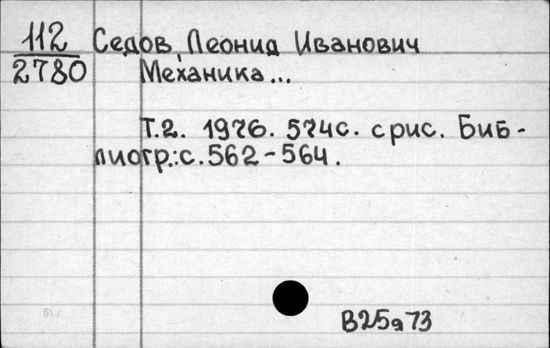 112
2780
Седов, Леонид Иванович
Механика...
Т.2. 1976. 574с. с рис. Биб-
лиогр.: с. 562-564.
В25я73